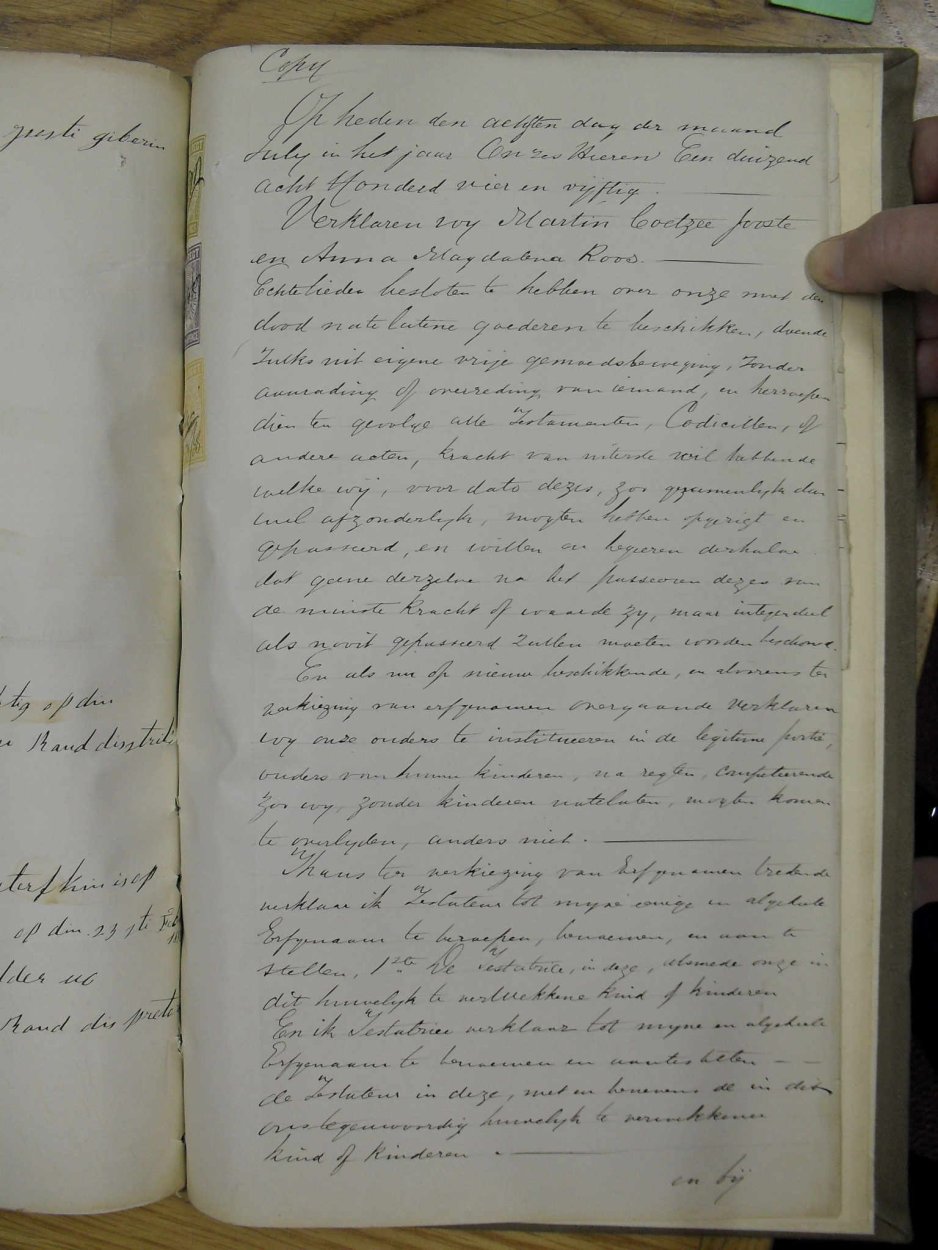 poste giberin
op din
Rand distrik
sterfhuis op
op din. 23 ste Feb
Rand dis preto
Copy
Op heden den achtten dag der maand
July in het jaar Onzes Heeren Een duizend
acht Honderd vier en vyftig.
Verklaren wy Martin Coetzee Jooste
en Anna Magdalena Roos.
Echtelieden besloten te hebben over onze met der
dood natelatene goederen te beschikken, doende
zulks uit eigene vrije gemoedsbeweging, zonder
aanrading of overreding van iemand, en herroepen
dien ten gevolge alle Testamenten, Codicillen, of
andere acten, kracht van uiterste wil hebbende
welke wij, voor dato dezes, zoo gezamenlyk dan
wel afzonderlyk, mogten hebben opgerigt en
gepasseerd, en willen en begeeren derhalve
dat geene derzelve na het passeeren dezes van
de minste kracht of waarde zy, maar integendeel
als nooit gepasseerd zullen moeten worden beschouwd.
En als nu op nieuw beschikkende, en alvorens ter
verkiezing van erfgenamen overgaande verklaren
wy onze ouders te institueeren in de legitime portie,
ouders van hunne kinderen, na regten, competeerende
zoo wy, zonder kinderen natelaten, mogten komen
te overlyden, anders niet.
Thans ter verkiezing van Erfgenamen tredende
verklaar ik Testateur tot myne eenige en algeheele
Erfgenaam te beroepen, benoemen, en aan te
stellen, 1ste De Testatrice, in deze, alsmede onze in
dit huwelyk te verwekkene kind of kinderen
En ik Testatrice verklaar tot myne en algeheele
Erfgenaam te benoemen en aantestellen - -
de Testateur in deze, met en benevens de in dit
ons tegenwoordig huwelyk te verwekkene
kind of kinderen.
en bij